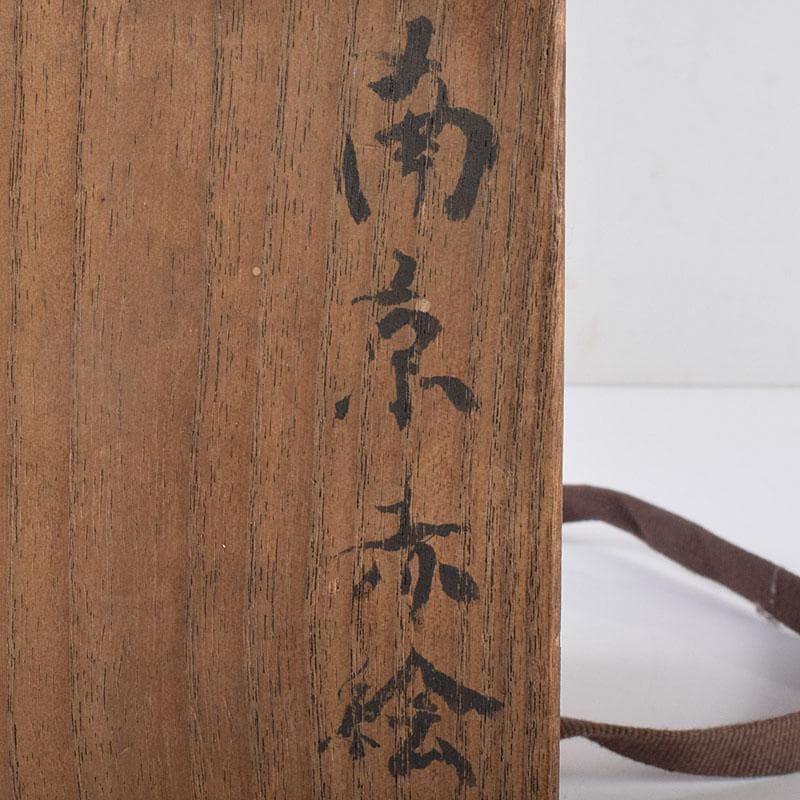 南京赤絵